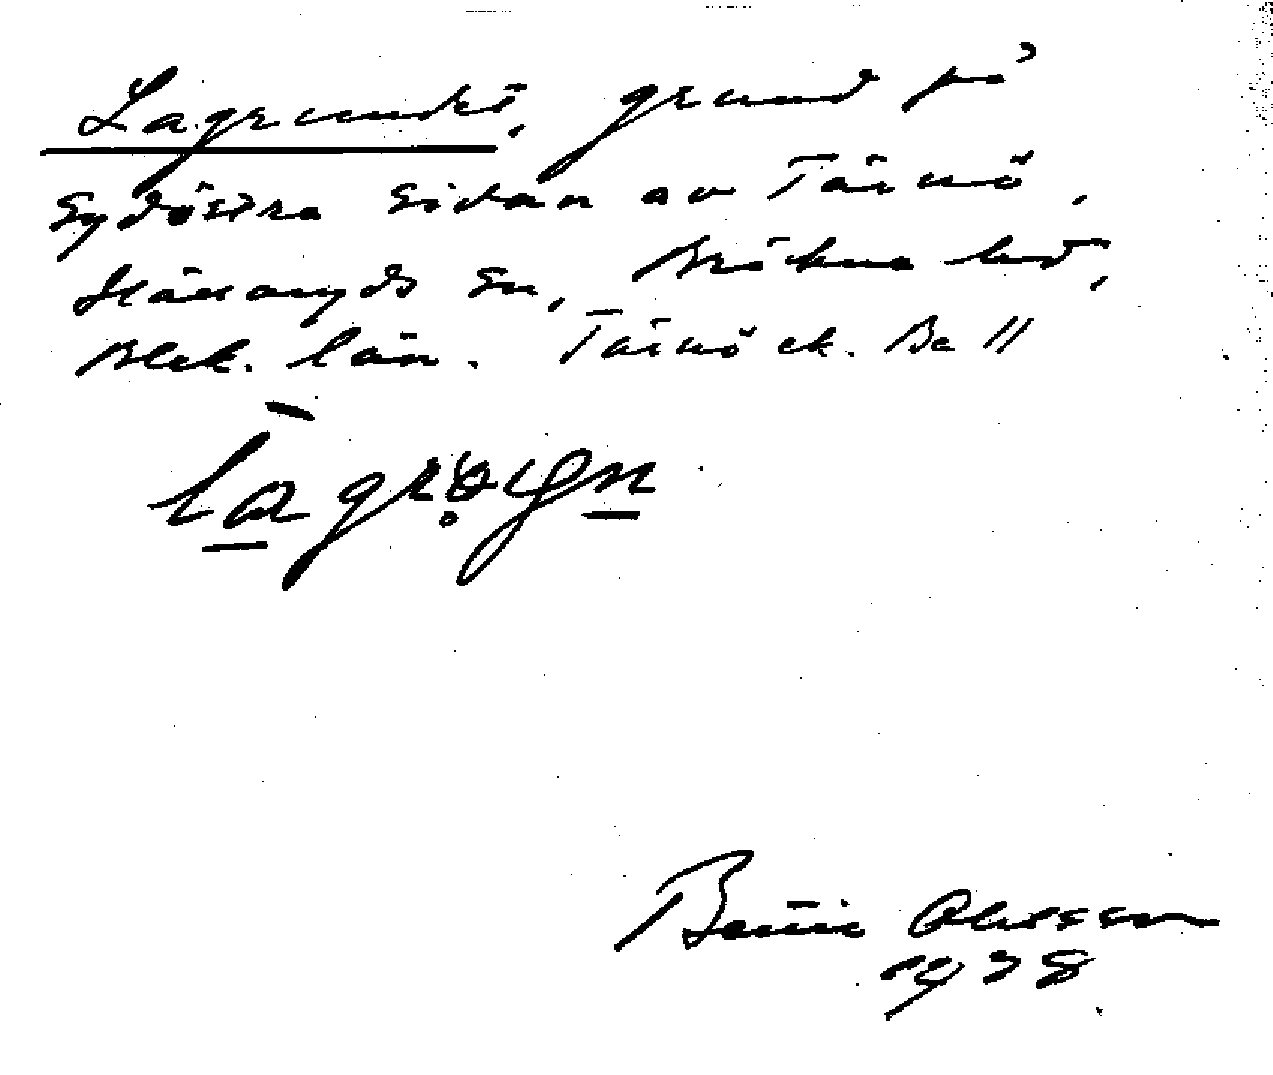 Lagrundet, grund på
Sydöstra sidan av Tärnö,
Hällaryds sn, Bräkne hd,
Blek. län. Tärnö ek. Be 11
Bertil Ohlsson
1928